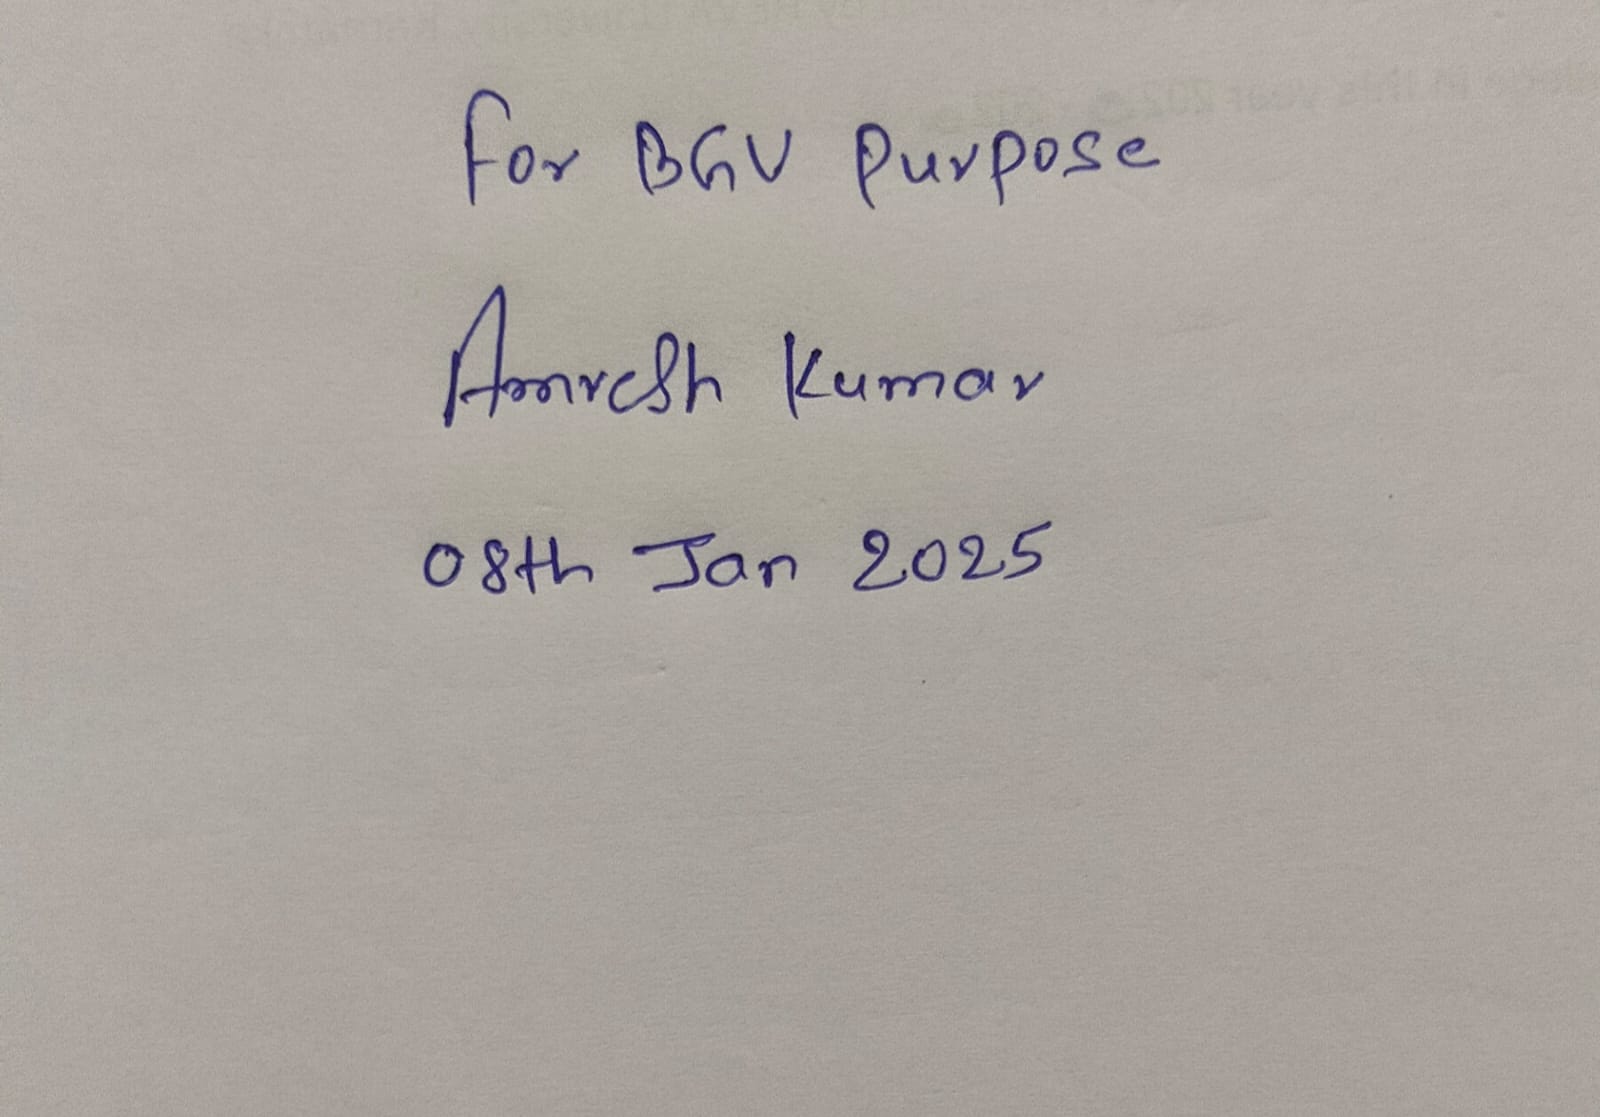 For BGV Purpose
Amresh Kumar
08th Jan 2025